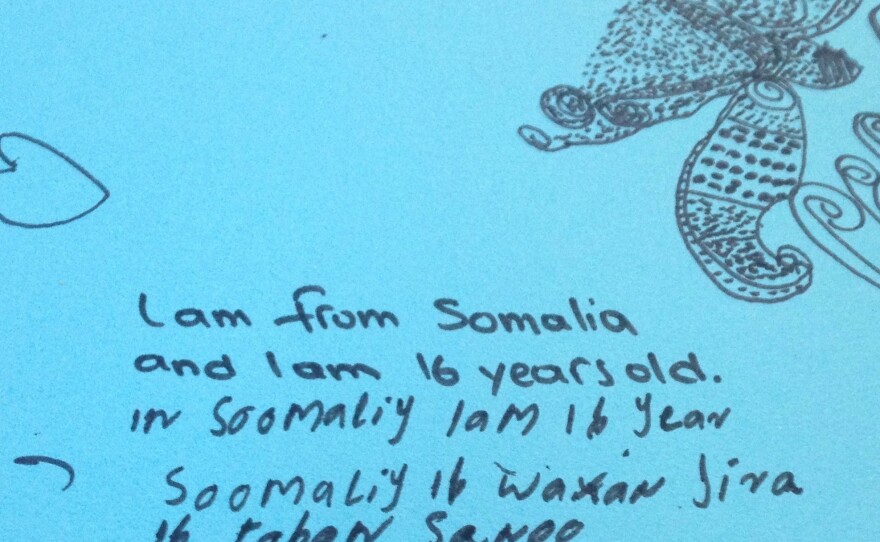 I am from Somalia
and I am 16 years old.
in Soomaliy Iam 16 year
Soomaliy 16 waxan Jira
16 taban Sanoo